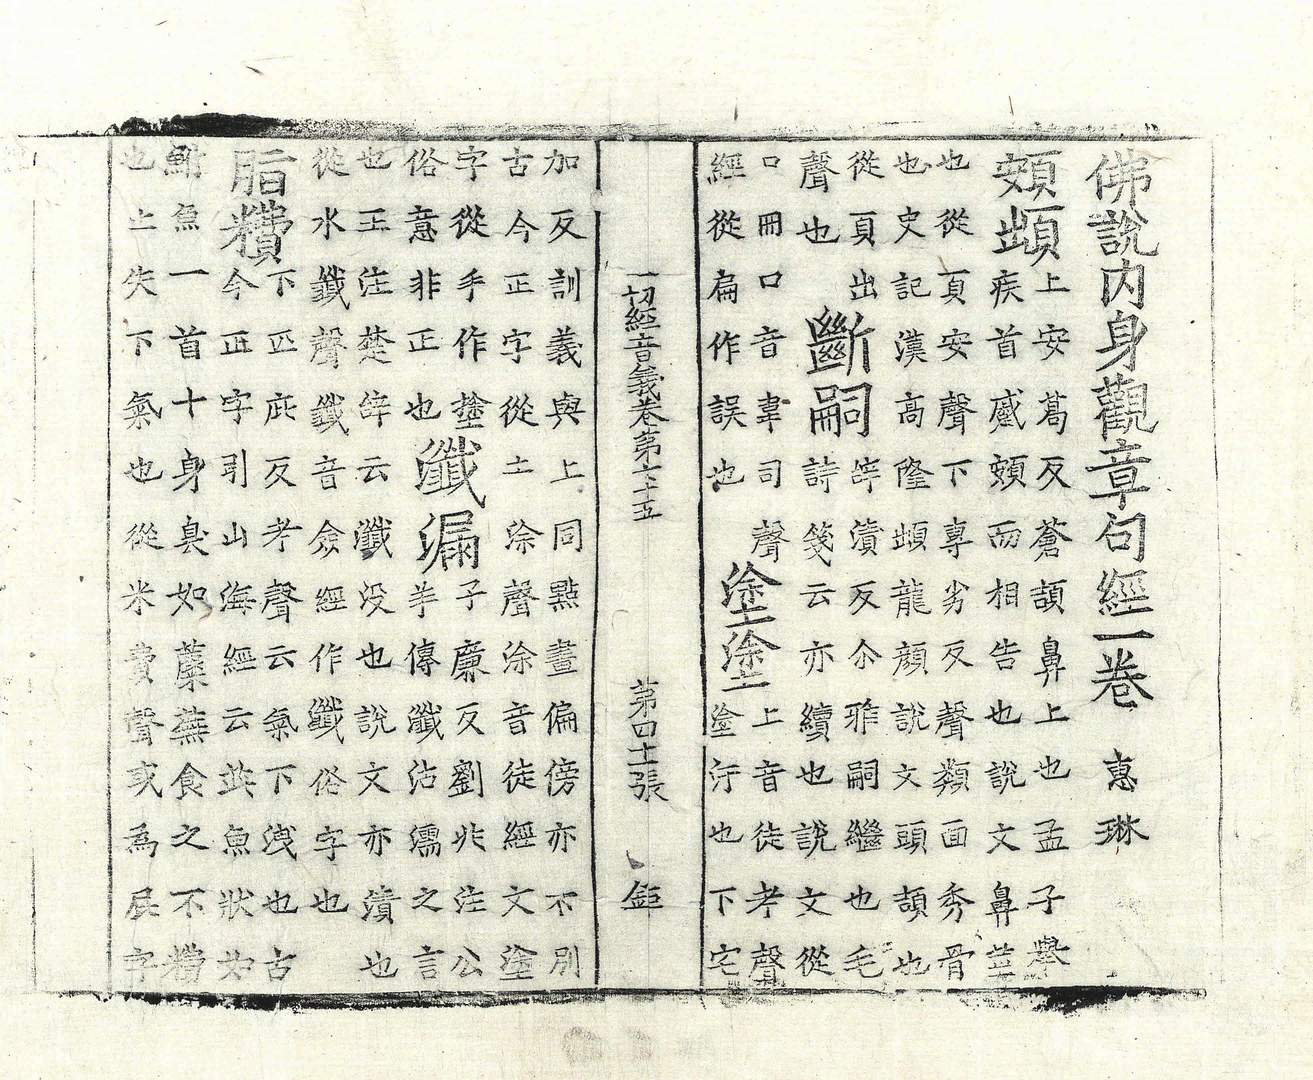 佛說內身觀章句經一卷 惠琳
頞䪼
上安葛反蒼頡鼻上也孟子舉
疾首蹙頞而相告也說文鼻莖
也從頁安聲下專劣反聲類面秀骨
也史記漢高隆䪼龍顏說文頭頡也
從頁出
聲也
斷嗣
辝漬反尒雅嗣繼也毛
詩箋云亦續也說文從
口冊口音韋司聲
經從扁作誤也
塗塗
上音徒考聲
塗汙也下宅
一切經音義卷第六十五 第四十張 鉅
加反訓義與上同點畫偏傍亦不別
古今正字從土涂聲涂音徒經文塗
字從手作
俗意非正也
瀸漏
子廉反劉兆注公
羊傳瀸沾濡之言
也王注楚辝云瀸没也說文亦漬也
從水韱聲韱音僉經作纖俗字也
脂𥽋
下匹庇反考聲云氣下洩也古
今正字引山海經云茈魚狀如
鮒魚一首十身臭如蘪蕪食之不𥽋
也止失下氣也從米費聲或為屁字